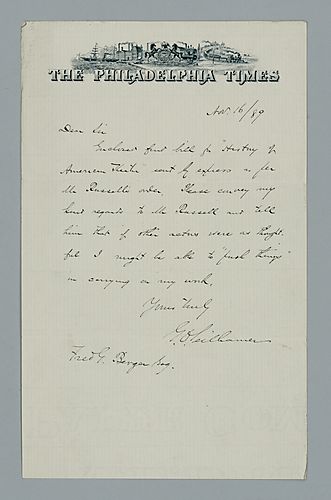 THE PHILADELPHIA TIMES
Nov. 16/89
Dear Sir
Enclosed find bill for "History of
American Theatre" sent by express as per
Mr Russell's order. Please convey my
kind regards to Mr Russell and tell
him that if other actors were as thought-
ful I might be able to "push things"
in carrying on my work.
Yours truly
G. O. Seilhamer
Fred G. Berger Esq.